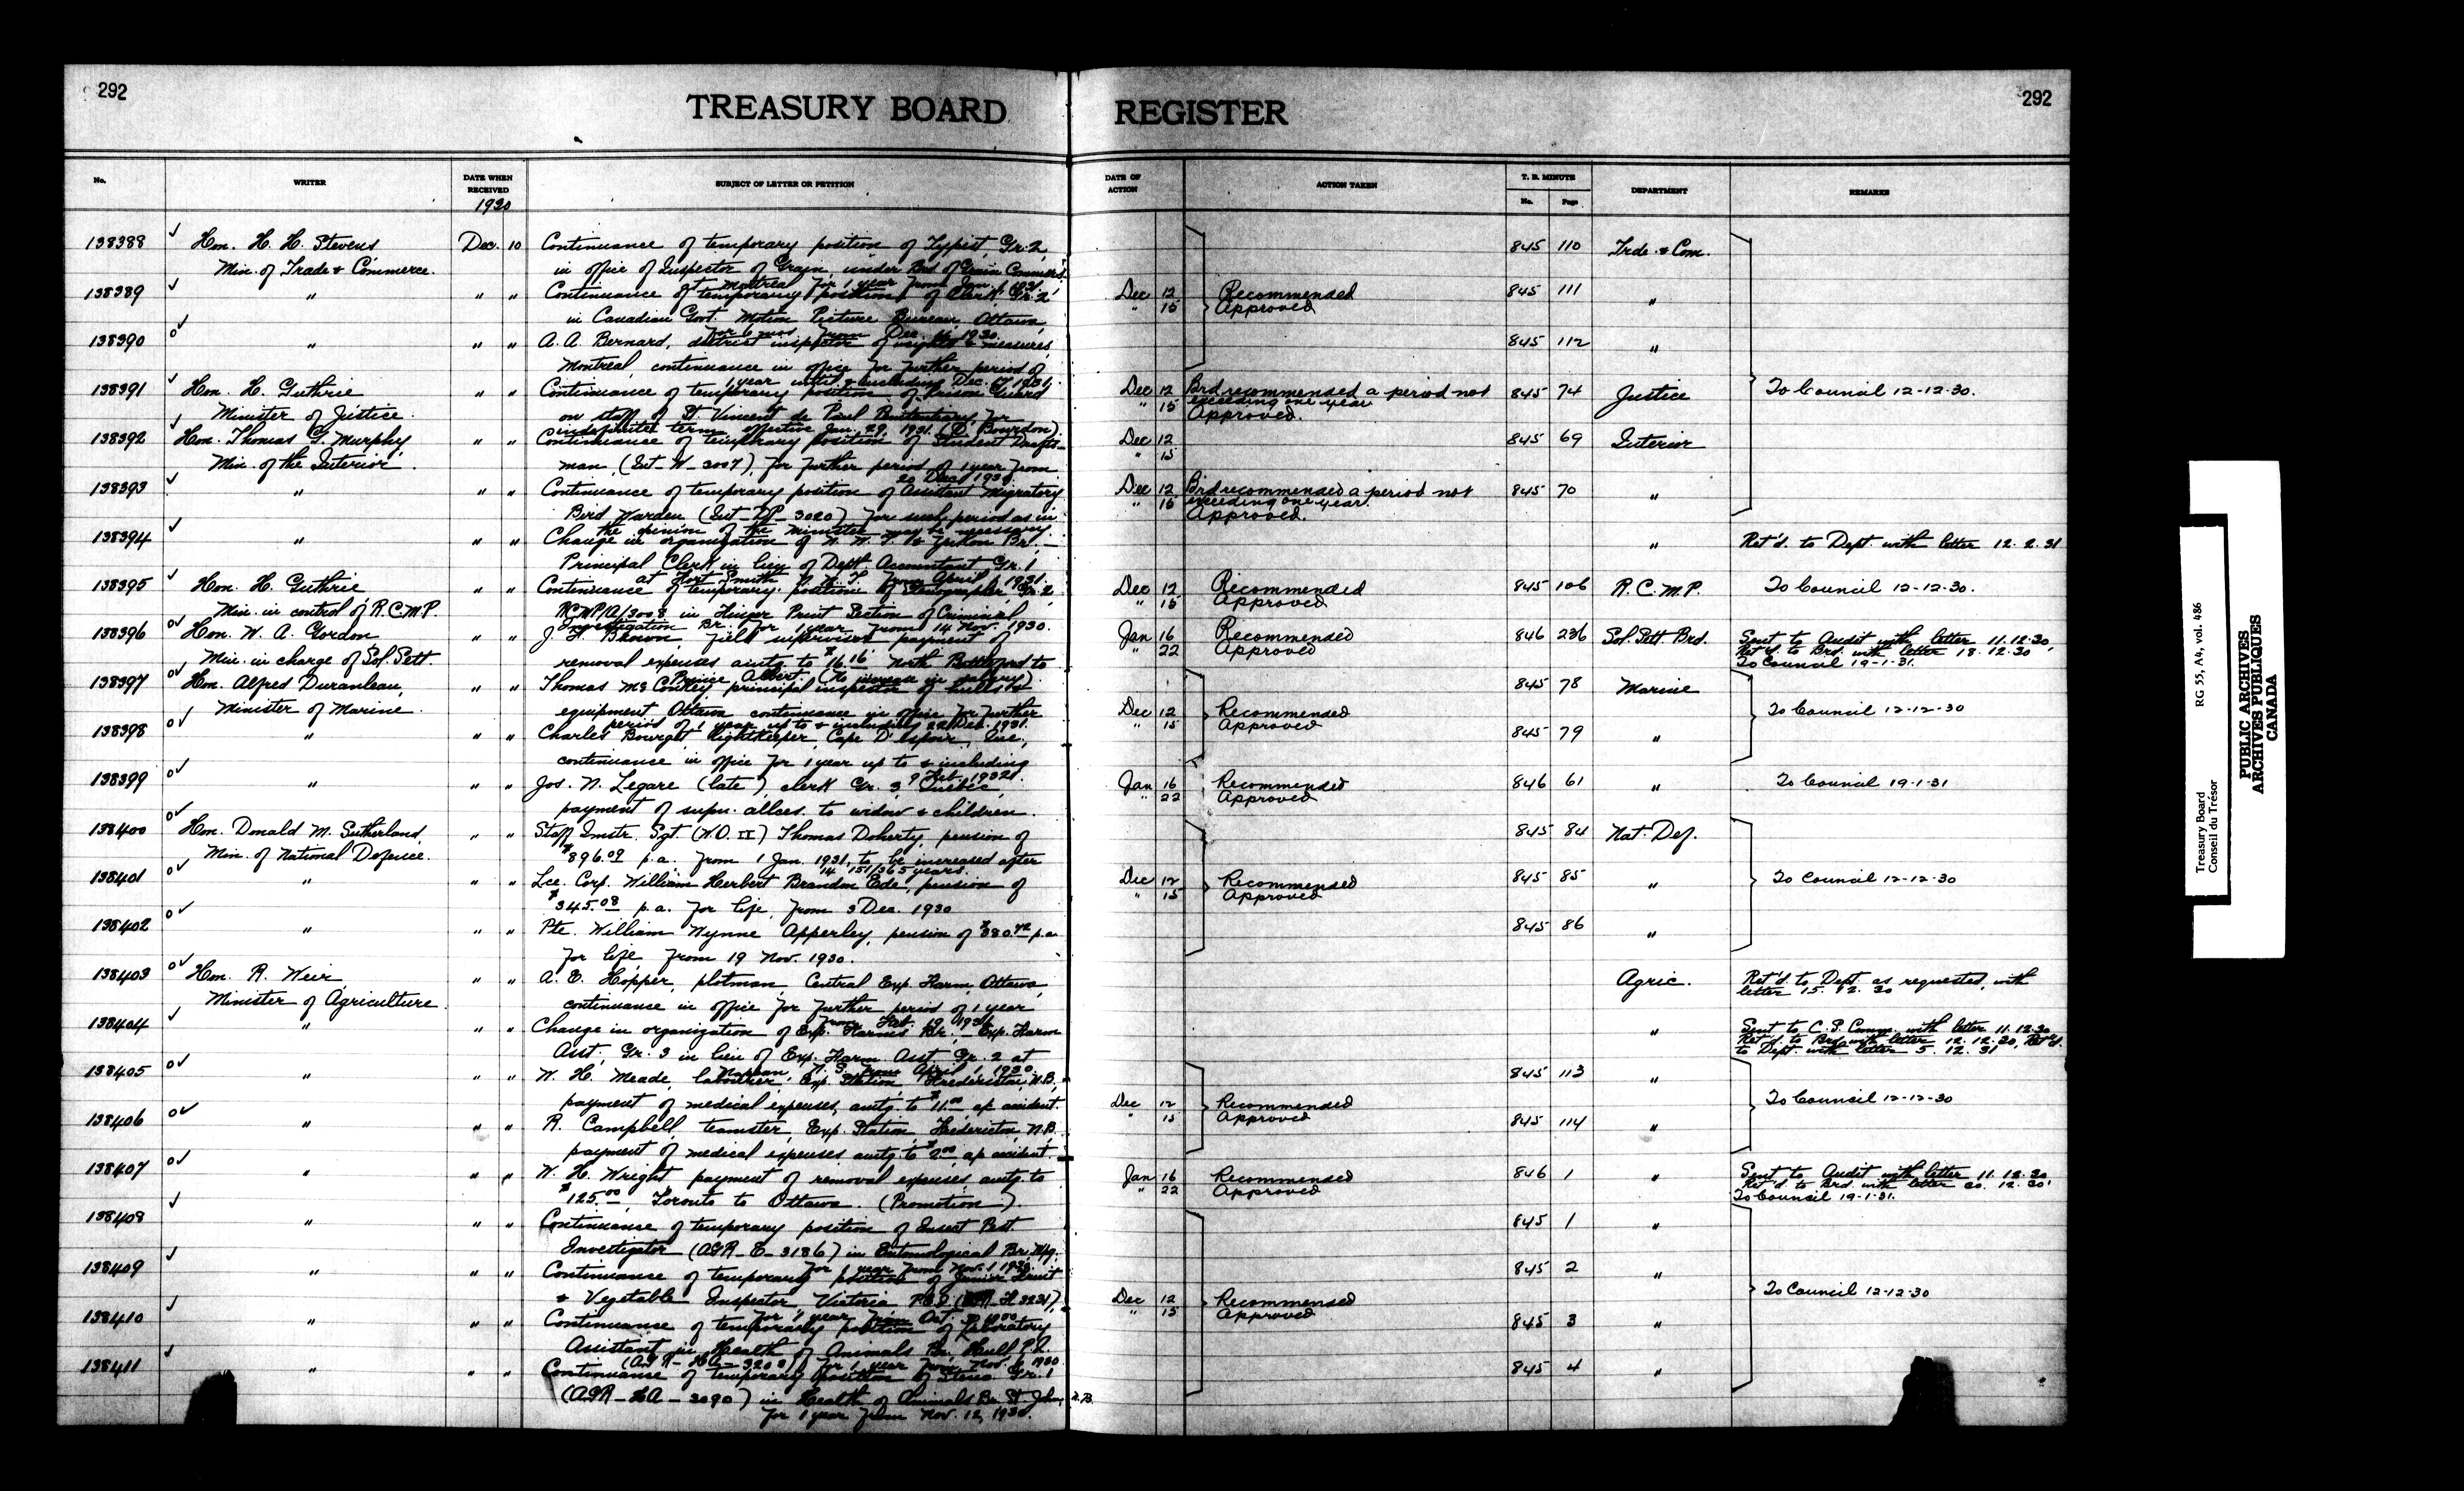 292
TREASURY BOARD REGISTER
292
No. WRITER DATE WHEN RECEIVED SUBJECT OF LETTER OR PETITION DATE OF ACTION ACTION TAKEN T. B. MINUTE No. Page DEPARTMENT REMARKS
1930
138388 ✓ Hon. H. H. Stevens Dec. 10 Continuance of temporary position of Typist, Gr. 2, 845 110 Trde. & Com.
Min. of Trade & Commerce. in office of Inspector of Grain, under Brd. of Grain Commrs.
at Montreal for 1 year from Jan. 1, 1931.
138389 ✓ " " " Continuance of temporary position of Clerk Gr. 2, Dec 12 Recommended 845 111 "
in Canadian Govt. Motion Picture Bureau, Ottawa, " 15 Approved
for 6 mos. from Dec. 1930.
138390 o✓ " " " A. A. Bernard, district inspector of weights & measures, 845 112 "
Montreal, continuance in office for further period of
1 year until & including Dec. 1931.
138391 ✓ Hon. H. Guthrie " " Continuance of temporary position of Prison Guard Dec 12 Brd. recommended a period not 845 74 Justice To Council 12-12-30.
Minister of Justice. on staff of St. Vincent de Paul Penitentiary for " 15 exceeding one year
indefinite term, effective Jan. 29, 1931. (Bourdon). Approved.
138392 ✓ Hon. Thomas G. Murphy, " " Continuance of temporary position of Student Drafts- Dec 12 845 69 Interior
Min. of the Interior. man, (Int-W-3007), for further period of 1 year from " 15
20 Dec. 1930.
138393 ✓ " " " Continuance of temporary position of Assistant Migratory Dec 12 Brd. recommended a period not 845 70 "
Bird Warden (Int-NP-3020) for such period as in " 15 exceeding one year.
the opinion of the Minister may be necessary. Approved.
138394 ✓ " " " Change in organization of N. W. T. & Yukon Br. — " Ret'd. to Dept. with letter 12. 2. 31
Principal Clerk in lieu of Dept. Accountant Gr. 1
at Fort Smith N. W. T. from April 1, 1931.
138395 ✓ Hon. H. Guthrie " " Continuance of temporary position of Stenographer Gr. 2, Dec 12 Recommended 845 106 R.C.M.P. To Council 12-12-30.
Min. in control of R.C.M.P. in Finger Print Section of Criminal " 15 Approved
Investigation Br. for 1 year from 14 Nov. 1930.
138396 o✓ Hon. W. A. Gordon " " field supervisor, payment of Jan 16 Recommended 846 236 Sol. Sett. Brd. Sent to Audit with letter 11.12.30,
Min. in charge of Sol. Sett. removal expenses amtg. to $16.16 North Battleford to " 22 Approved Ret'd. to Brd. with letter 18.12.30,
Prince Albert. (No increase in salary). To Council 19-1-31.
138397 o✓ Hon. Alfred Duranleau, " " Thomas McConkey principal inspector of hulls & 845 78 Marine
Minister of Marine. equipment Ottawa continuance in office for further Dec 12 Recommended To Council 12-12-30
period of 1 year up to & including 22 Dec. 1931. " 15 Approved
138398 o✓ " " " Charles Bourget lightkeeper, Cape D'espoir, Que., 845 79 "
continuance in office for 1 year up to & including
9 Feb. 1932.
138399 o✓ " " " Jos. N. Legare (late), clerk Gr. 3 Quebec, Jan 16 Recommended 846 61 " To Council 19-1-31
payment of supn. allces. to widow & children. " 22 Approved
138400 o✓ Hon. Donald M. Sutherland, " " Staff Instr. Sgt. (W.O. II) Thomas Doherty, pension of 845 84 Nat. Def.
Min. of National Defence. $896.09 p.a. from 1 Jan. 1931, to be increased after
14 151/365 years.
138401 o✓ " " " Lce. Corp. William Herbert Brandon Ede, pension of Dec 12 Recommended 845 85 " To Council 12-12-30
$345.08 p.a. for life, from 3 Dec. 1930 " 15 Approved
138402 o✓ " " " Pte. William Wynne Apperley, pension of $380.72 p.a. 845 86 "
for life from 19 Nov. 1930.
138403 o✓ Hon. R. Weir, " " A. E. Hopper, plotman, Central Exp. Farm, Ottawa, Agric. Ret'd. to Dept. as requested, with
Minister of Agriculture. continuance in office for further period of 1 year letter 15. 12. 30
from Feb. 19, 1931.
138404 ✓ " " " Change in organization of Exp. Farms Br. — Exp. Farm " Sent to C. S. Comm. with letter 11.12.30
Asst. Gr. 3 in lieu of Exp. Farm Asst. Gr. 2 at Ret'd. to Brd. with letter 12.12.30, Ret'd.
Nappan, N. S. from April 1, 1930. to Dept. with letter 5. 12. 31
138405 o✓ " " " W. H. Meade, labourer, Exp. Station, Fredericton, N.B., 845 113 "
payment of medical expenses, amtg. to $11.00 a/c accident. Dec 12 Recommended To Council 12-12-30
138406 o✓ " " " R. Campbell, teamster, Exp. Station, Fredericton, N.B. " 15 Approved 845 114 "
payment of medical expenses amtg. to $2.00 a/c accident.
138407 o✓ " " " W. H. Wright payment of removal expenses, amtg. to Jan 16 Recommended 846 1 " Sent to Audit with letter 11.12.30
$125.00, Toronto to Ottawa. (Promotion). " 22 Approved Ret'd to Brd. with letter 20.12.30,
To Council 19-1-31.
138408 ✓ " " " Continuance of temporary position of Insect Pest 845 1 "
Investigator (AGR-E-3186) in Entomological Br.
for 1 year from Nov. 1 1930.
138409 ✓ " " " Continuance of temporary position of Junior Fruit 845 2 "
& Vegetable Inspector Victoria B.C. Dec 12 Recommended To Council 12-12-30
for 1 year from Oct. " 15 Approved
138410 ✓ " " " Continuance of temporary position of Laboratory 845 3 "
Assistant in Health of Animals Br. Hull, P.Q.
(AGR-HA-3203), for 1 year from Nov. 1930
138411 ✓ " " " Continuance of temporary position of Steno. Gr. 1 845 4 "
(AGR-HA-3090) in Health of Animals Br. St. John, N.B.
for 1 year from Nov. 12, 1930.
Treasury Board RG 55, A4, vol. 486
Conseil du Trésor
PUBLIC ARCHIVES
ARCHIVES PUBLIQUES
CANADA